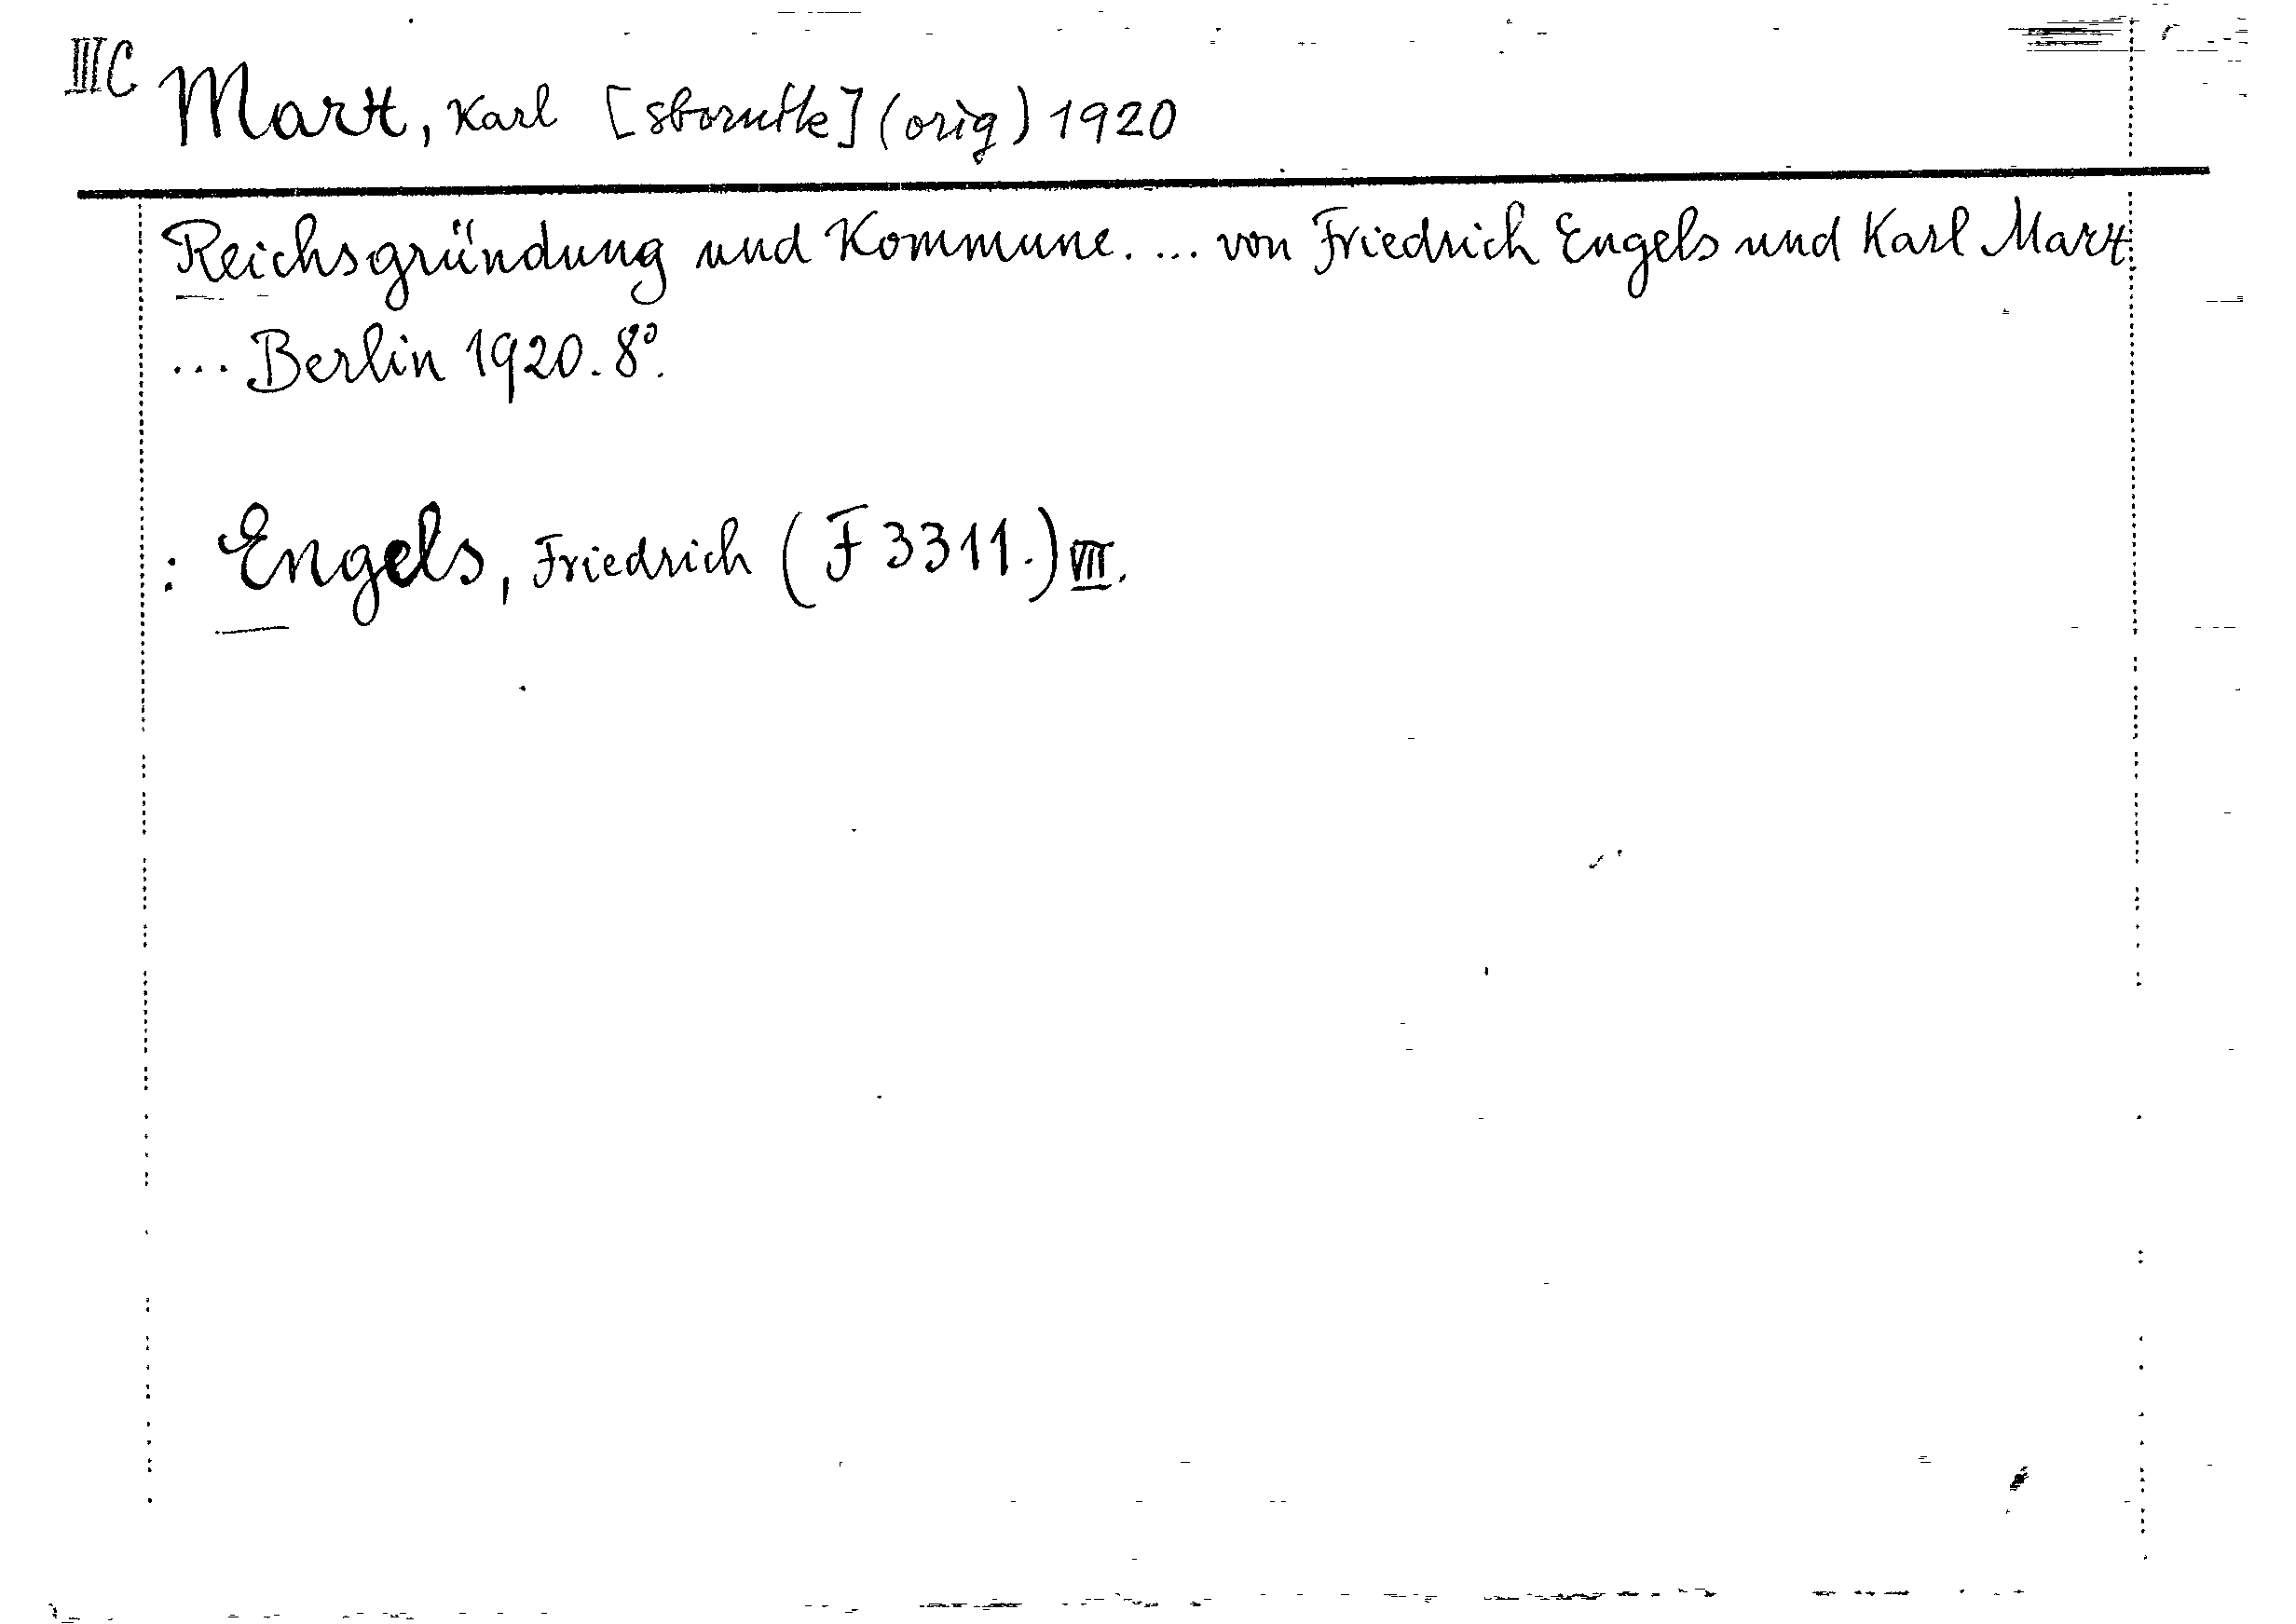 IIIC Marx, Karl [sborník] (orig) 1920
Reichsgründung und Kommune. ... von Friedrich Engels und Karl Marx.
... Berlin 1920. 8°.
: Engels, Friedrich (F 3311.) VII.